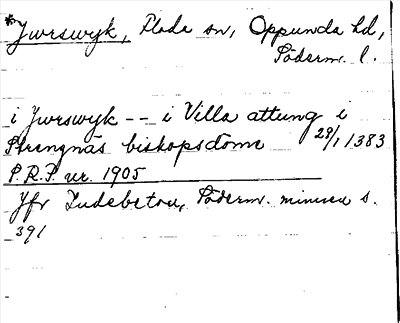 *Jwrswyk, Floda sn, Oppunda hd,
Söderm. l.
i Jwrswyk -- i Villa attung i
Strengnäs biskopsdöme 28/1 1383
P.R.P. nr. 1905
Jfr Ludebetou, Söderm. minnen s.
391